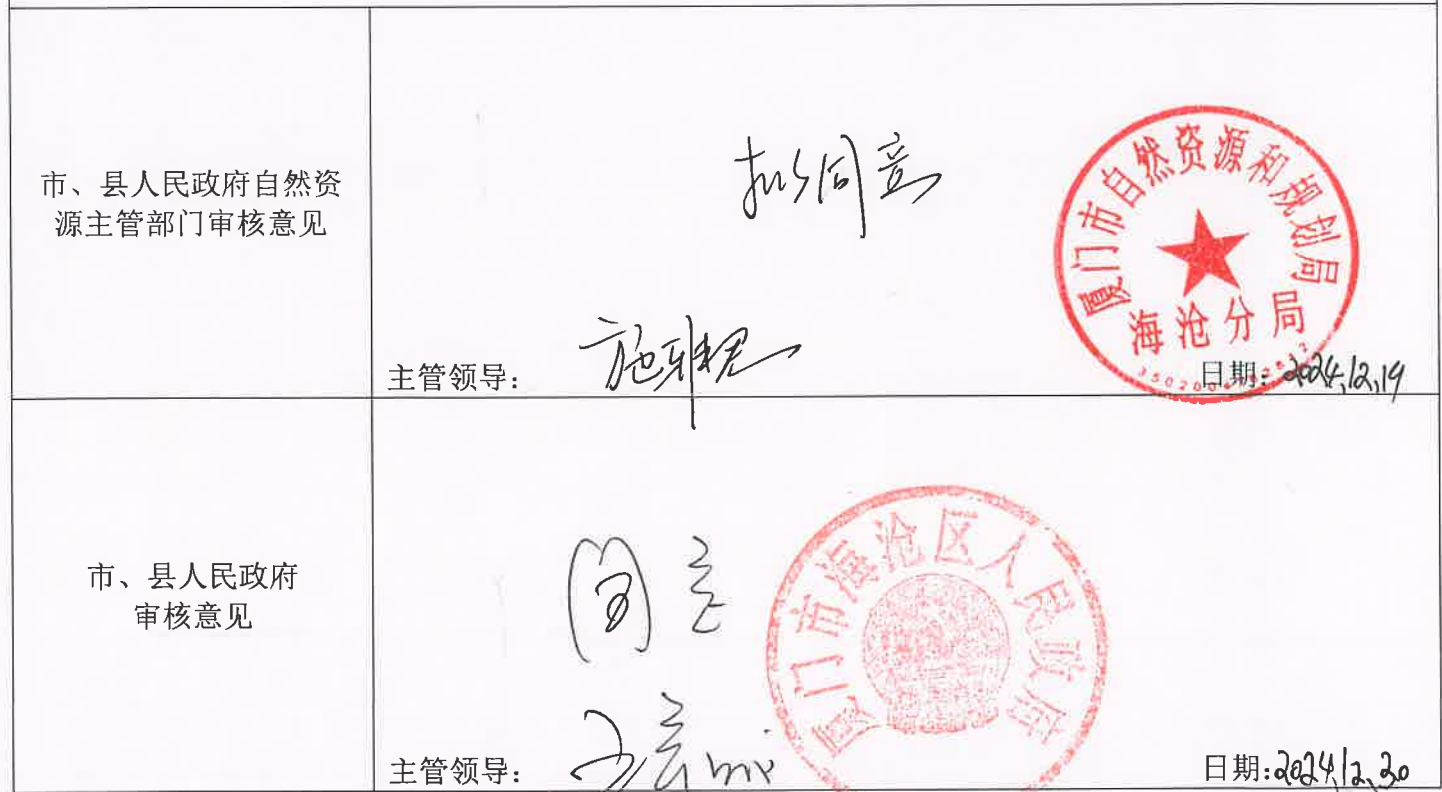 市、县人民政府自然资
源主管部门审核意见
拟同意
厦门市自然资源和规划局
海沧分局
主管领导：
日期：2024.12.19
市、县人民政府
审核意见
同意
厦门市海沧区人民政府
主管领导：
日期：2024.12.30